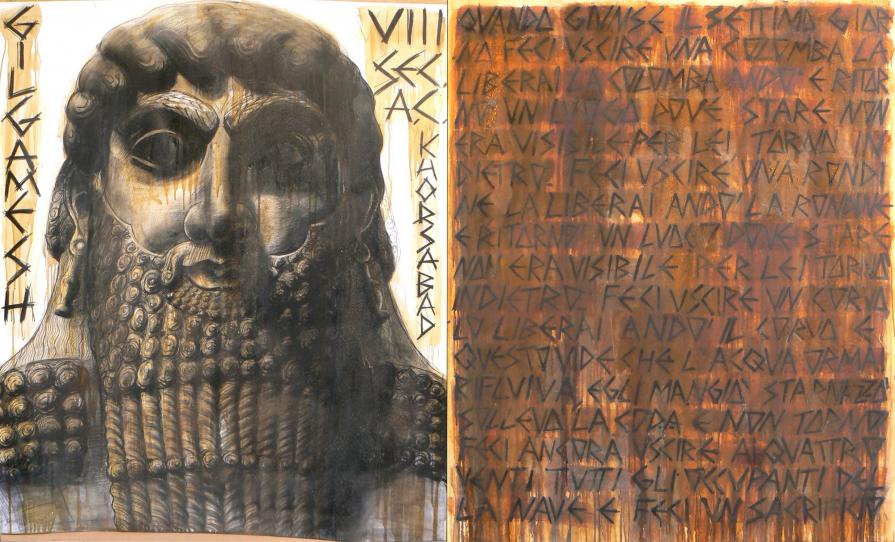 GILGAMESH
VIII
SEC.
A C.
KHORSABAD
QUANDO GIUNSE IL SETTIMO GIOR
NO FECI USCIRE UNA COLOMBA LA
LIBERAI LA COLOMBA ANDO' E RITOR
NO' UN LUOGO DOVE STARE NON
ERA VISIBILE PER LEI TORNO IN
DIETRO FECI USCIRE UNA RONDI
NE LA LIBERAI ANDO' LA RONDINE
E RITORNO' UN LUOGO DOVE STARE
NON ERA VISIBILE PER LEI TORNO
INDIETRO! FECI USCIRE UN CORVO
LO LIBERAI ANDO' IL CORVO E
QUESTO VIDE CHE L'ACQUA ORMAI
RIFLUIVA EGLI MANGIO' STARNAZZO
SOLLEVO' LA CODA E NON TORNO'
FECI ANCORA USCIRE AI QUATTRO
VENTI TUTTI GLI OCCUPANTI DEL
LA NAVE E FECI UN SACRIFICIO